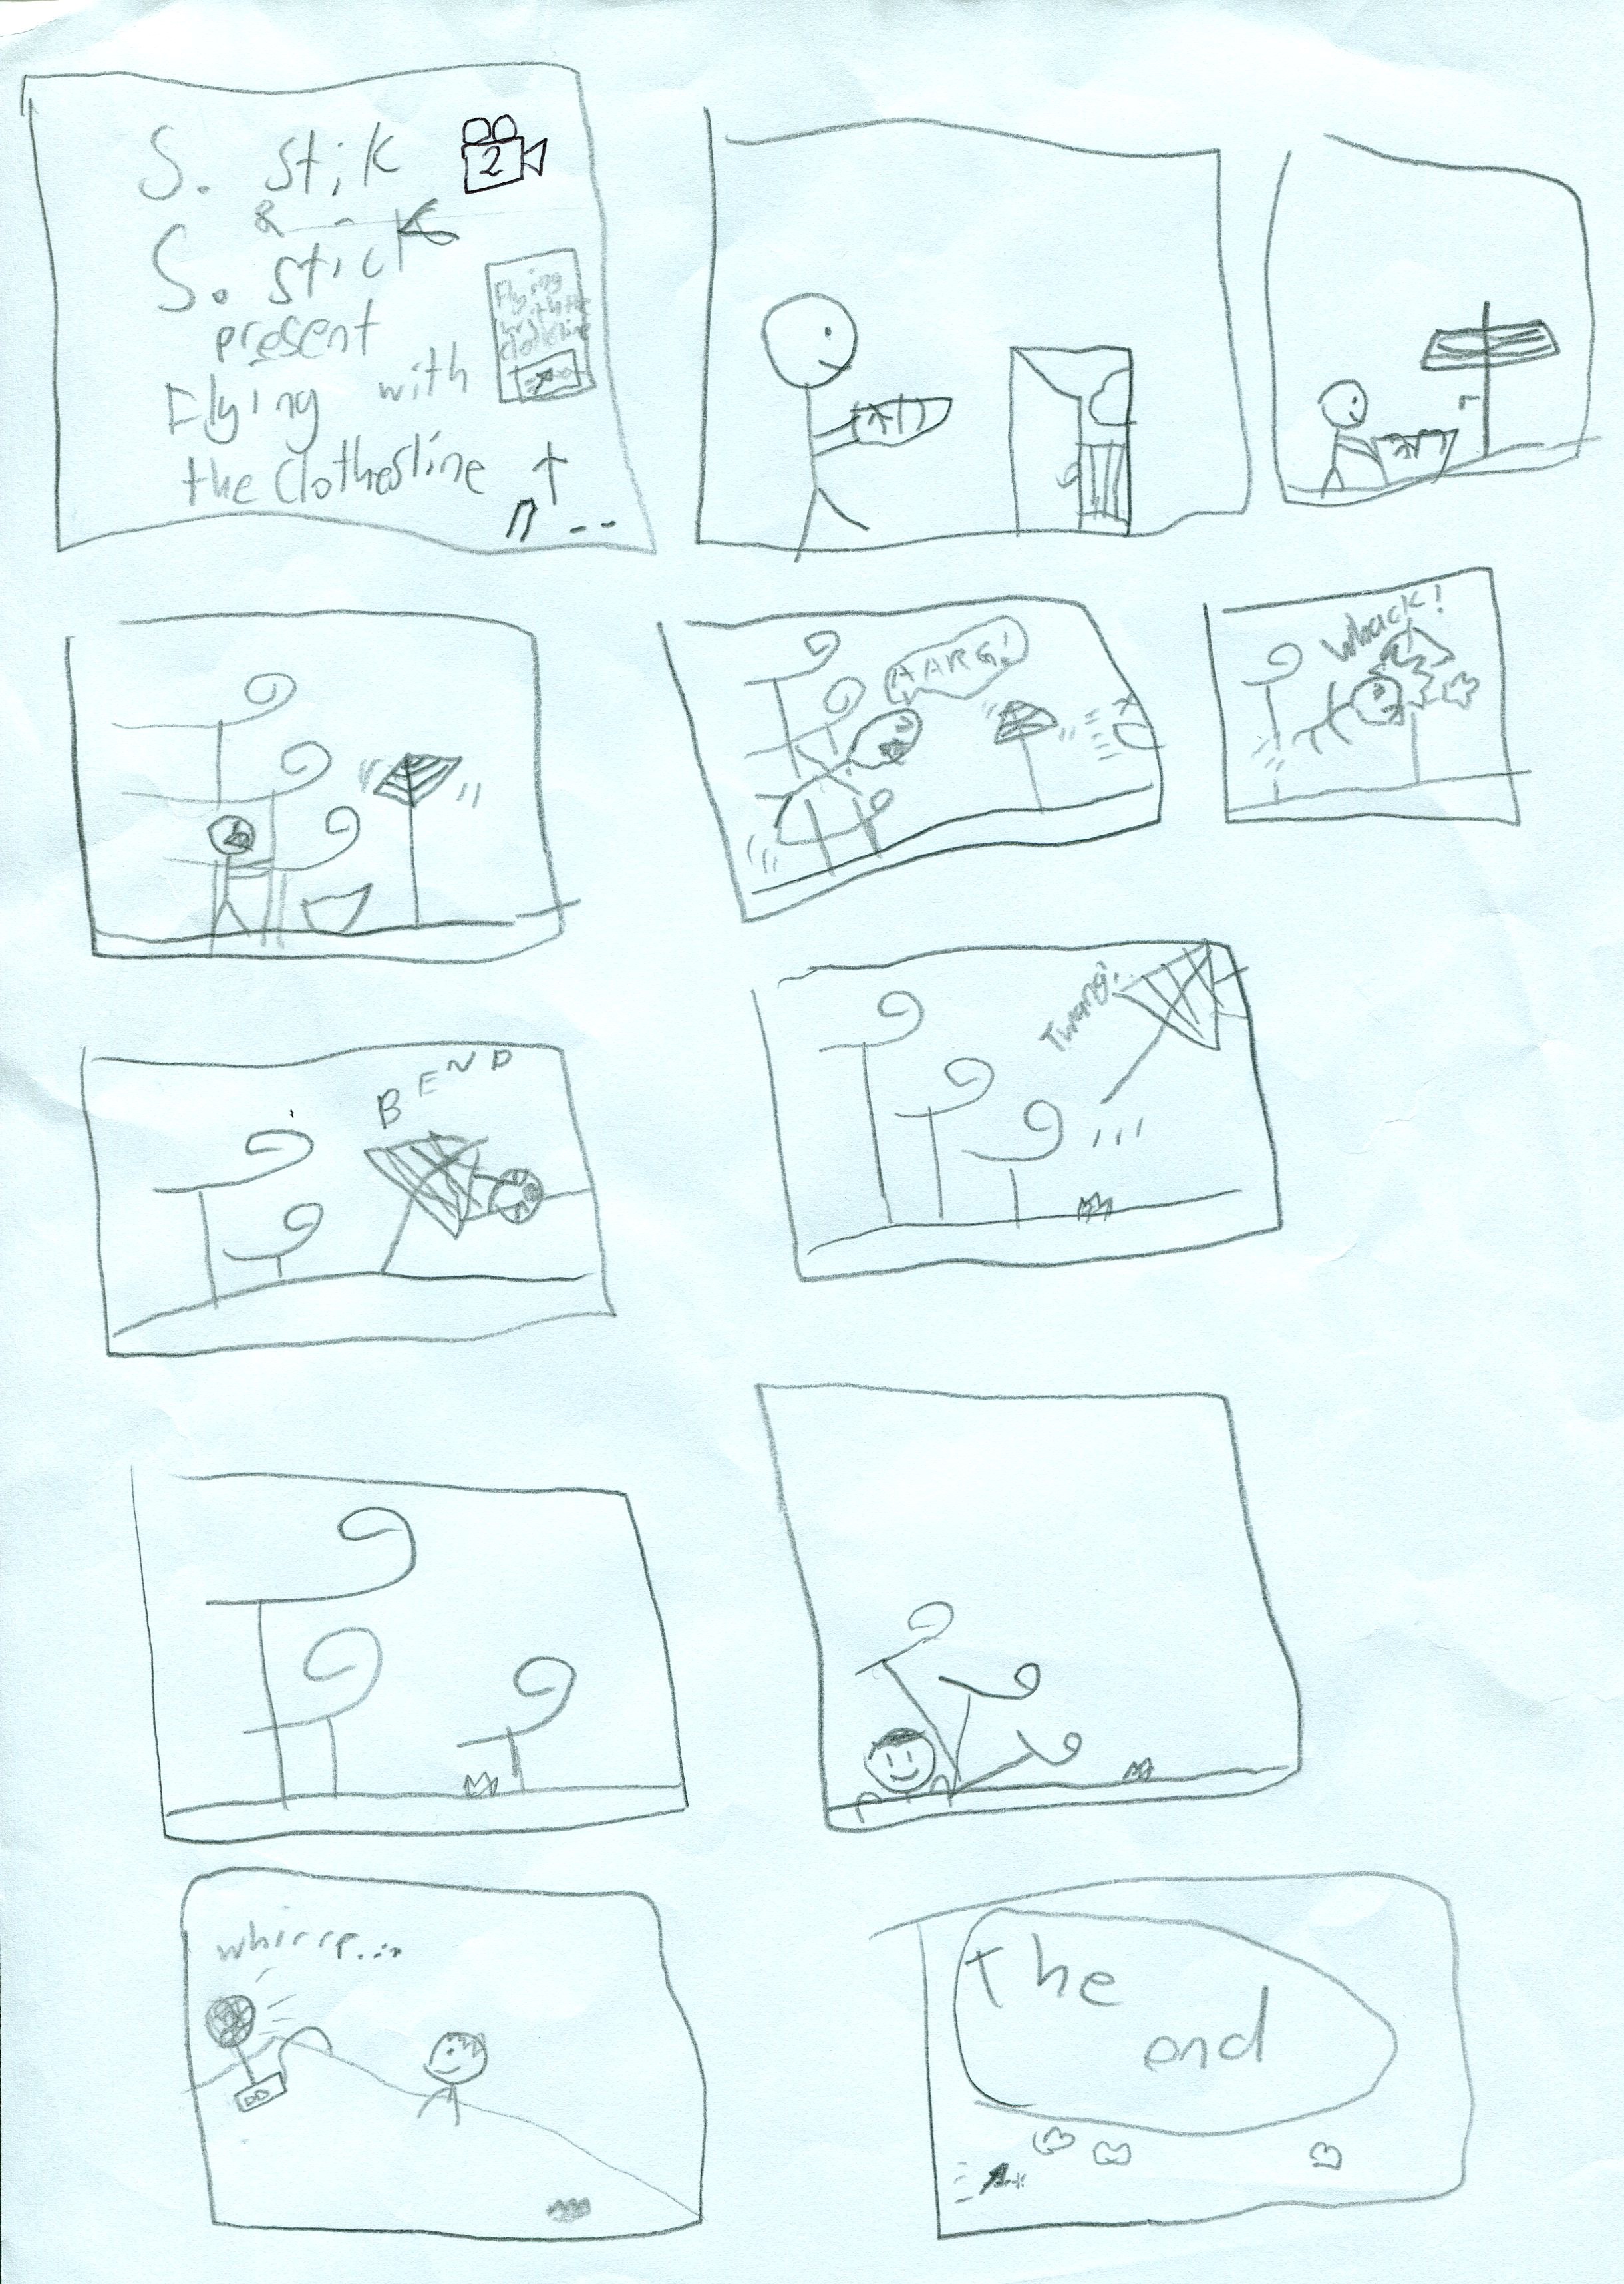 S. stik
2
&
S. stick
present
Flying with
the clothesline
Flying
with the
clothesline
AARG!
Whack!
BEND
Twang!
whirrr...
The
end